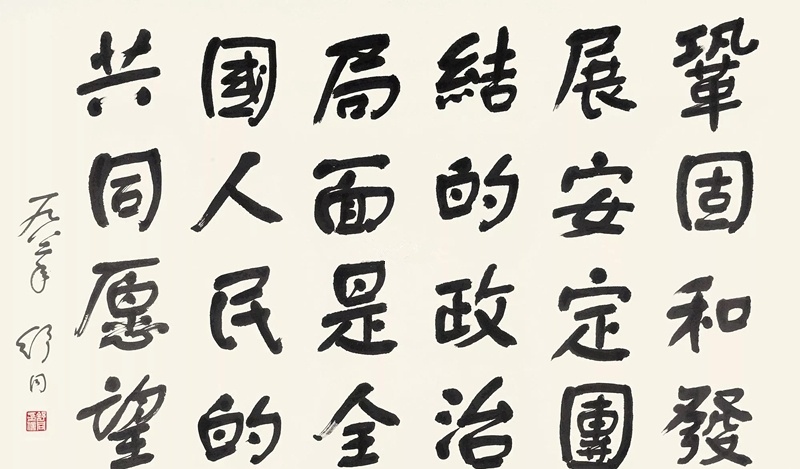 鞏固和發
展安定團
結的政治
局面是全
國人民的
共同愿望
一九八二年 舒同